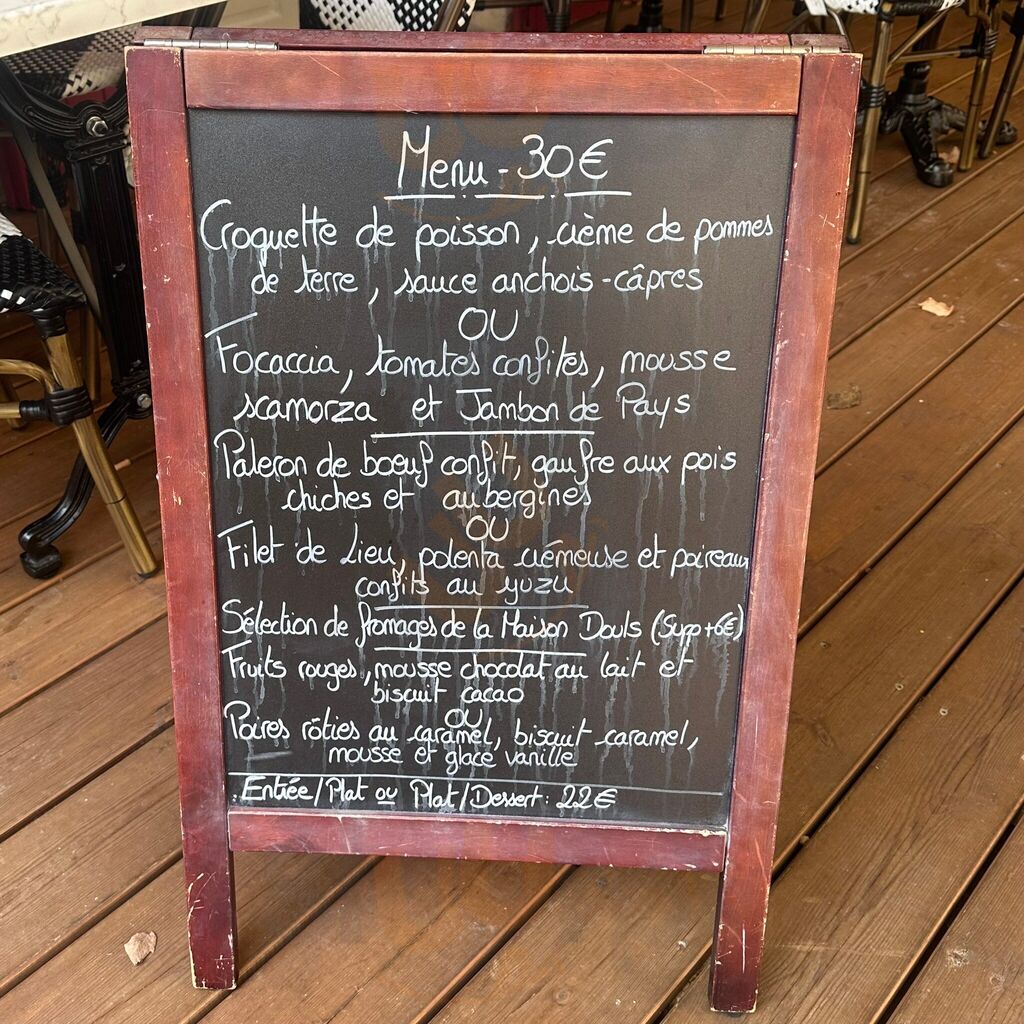 Menu - 30€
Croquette de poisson, crème de pommes
de terre, sauce anchois-câpres
OU
Focaccia, tomates confites, mousse
scamorza et Jambon de Pays
Paleron de boeuf confit, gaufre aux pois
chiches et aubergines
OU
Filet de Lieu, polenta crémeuse et poireaux
confits au yuzu
Sélection de fromages de la Maison Douls (Supp+6€)
Fruits rouges, mousse chocolat au lait et
biscuit cacao
OU
Poires rôties au caramel, biscuit caramel,
mousse et glace vanille
. Entrée/Plat ou Plat/Dessert : 22€